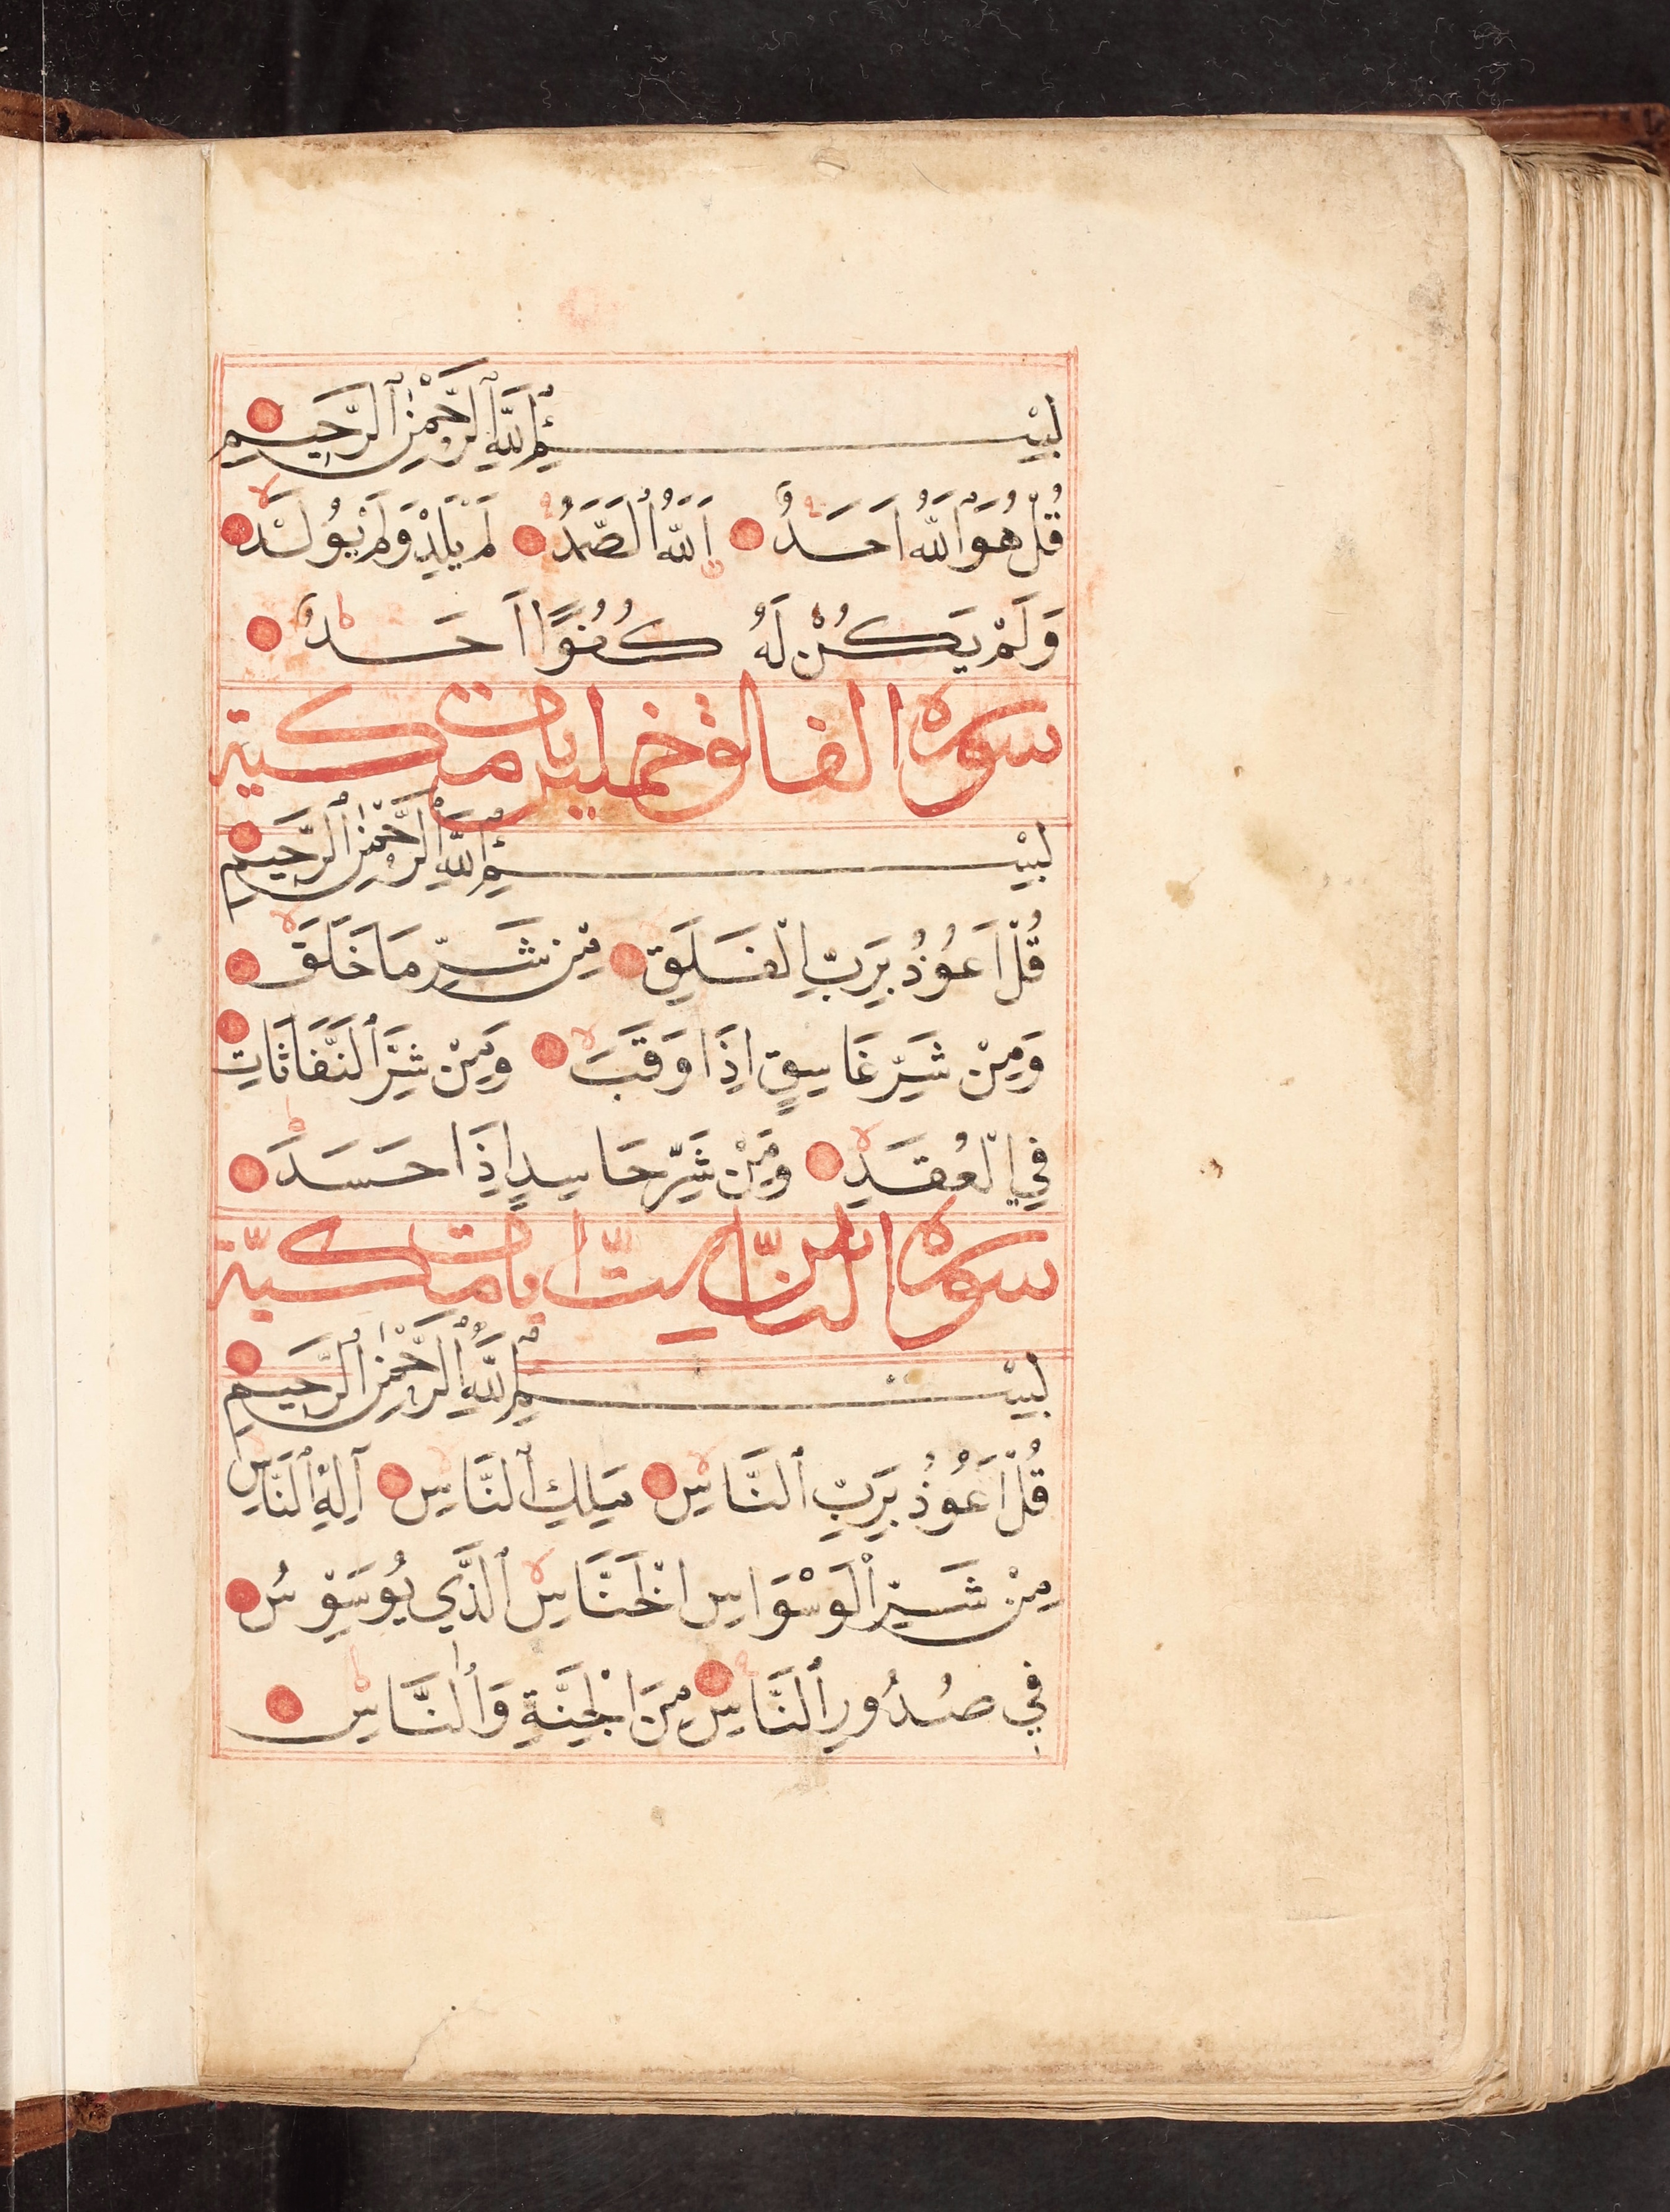 بِسْمِ ٱللَّهِ ٱلرَّحْمٰنِ ٱلرَّحِيمِ
قُلْ هُوَ ٱللَّهُ اَحَدٌ اَللَّهُ ٱلصَّمَدُ لَمْ يَلِدْ وَلَمْ يُولَدْ
وَلَمْ يَكُنْ لَهُ كُفُوًا اَحَدٌ
سورة الفلق خمس ايات مكية
بِسْمِ ٱللَّهِ ٱلرَّحْمٰنِ ٱلرَّحِيمِ
قُلْ اَعُوذُ بِرَبِّ الْفَلَقِ مِنْ شَرِّ مَا خَلَقَ
وَمِنْ شَرِّ غَاسِقٍ اِذَا وَقَبَ وَمِنْ شَرِّ ٱلنَّفَّاثَاتِ
فِي الْعُقَدِ وَمِنْ شَرِّ حَاسِدٍ اِذَا حَسَدَ
سورة الناس ستّ ايات مكيّة
بِسْمِ ٱللَّهِ ٱلرَّحْمٰنِ ٱلرَّحِيمِ
قُلْ اَعُوذُ بِرَبِّ ٱلنَّاسِ مَلِكِ ٱلنَّاسِ اِلٰهِ ٱلنَّاسِ
مِنْ شَرِّ ٱلْوَسْوَاسِ الْخَنَّاسِ ٱلَّذِي يُوَسْوِسُ
فِي صُدُورِ ٱلنَّاسِ مِنَ الْجِنَّةِ وَٱلنَّاسِ